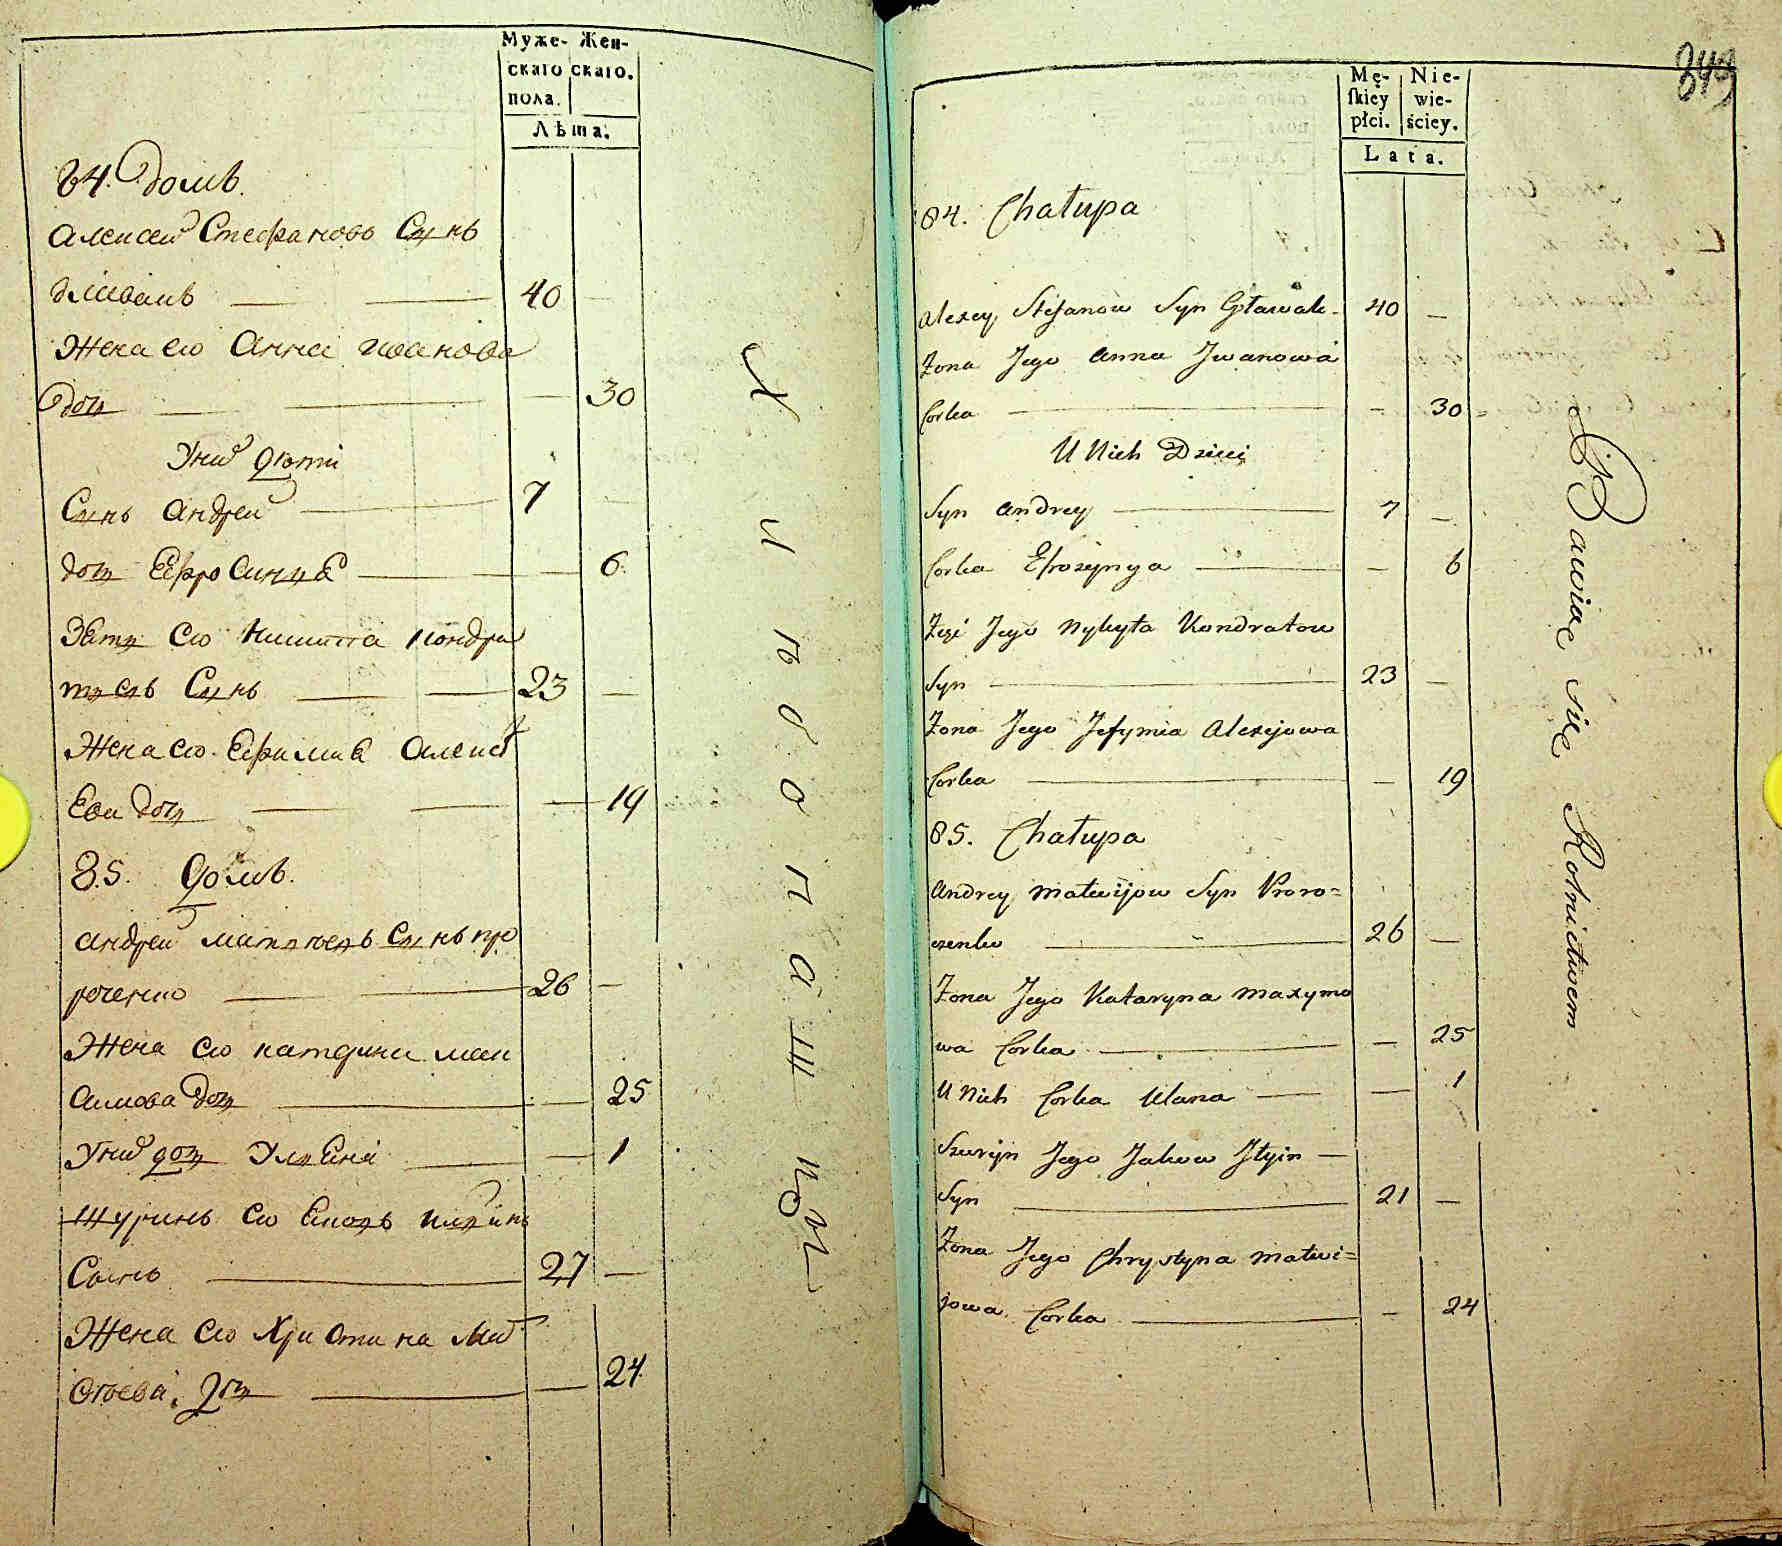 Муже- Жен-
скаго скаго.
пола.
Лѣта.
84. Домъ.
Алексей Стефановъ Сынъ
40 —
Жена его Анна Иванова
Доч — 30
У них дѣти
Сынъ Андрей — 7 —
Доч Ефросиния — 6
Зять его Никита Кондра
тьевъ Сынъ — 23 —
Жена его Ефимия Алексѣ
Ева Доч — 19
85. Домъ.
Андрей Матвѣевъ Сынъ про
роченко — 26 —
Жена его Катерина Мак
симова Доч — 25
У них доч Улияна — 1
Шуринъ его Яковъ Ильинъ
Сынъ — 27 —
Жена его Христина Мат
веева Доч — 24
Хлебопашцы
849
Mę- Nie-
skiey wie-
płci. ściey.
Lata.
84. Chałupa
Alexey Stefanow Syn Gławak - 40 —
Żona Jego Anna Jwanowa
Corka — 30
U Nich Dzieci
Syn Andrey — 7 —
Corka Efrozynya — 6
Zęć Jego Nykyta Kondratow
Syn — 23 —
Żona Jego Jefymia Alexejowa
Corka — 19
85. Chałupa
Andrey Matwijow Syn Proro=
czenko — 26 —
Żona Jego Kataryna Maxymo
wa Corka — 25
U Nich Corka Ulana — 1
Szuryn Jego Jakow Jłyin —
Syn — 21 —
Żona Jego Chrystyna Matwi=
jowa Corka — 24
Bawią się Rolnictwem